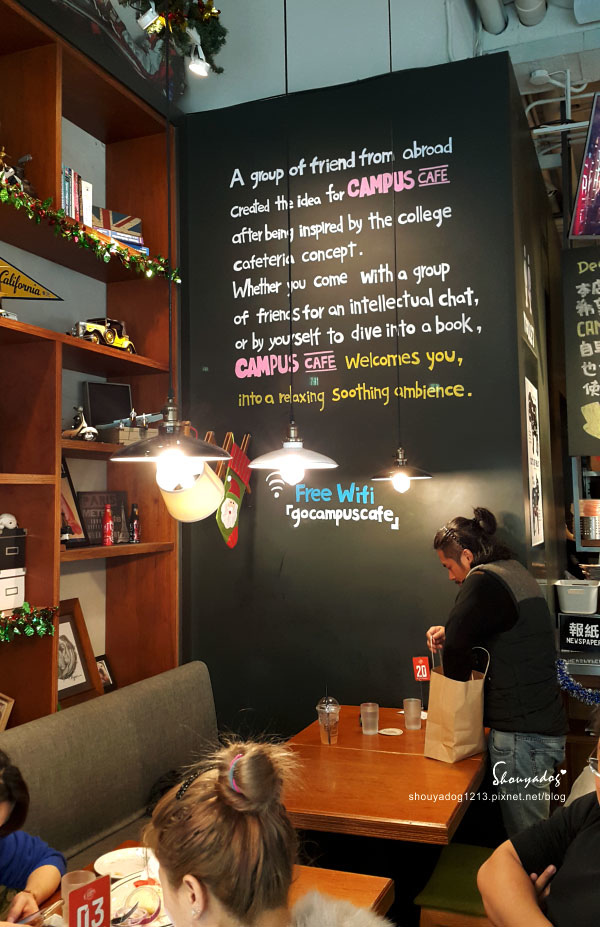 A group of friend from abroad
created the idea for CAMPUS CAFE
after being inspired by the college
cafeteria concept.
Whether you come with a group
of friends for an intellectual chat,
or by yourself to dive into a book,
CAMPUS CAFE Welcomes you,
into a relaxing soothing ambience.
Free Wifi
「gocampuscafe」
California
PARIS
20
03
報紙
NEWSPAPER
Shouyadog
shouyadog1213.pixnet.net/blog